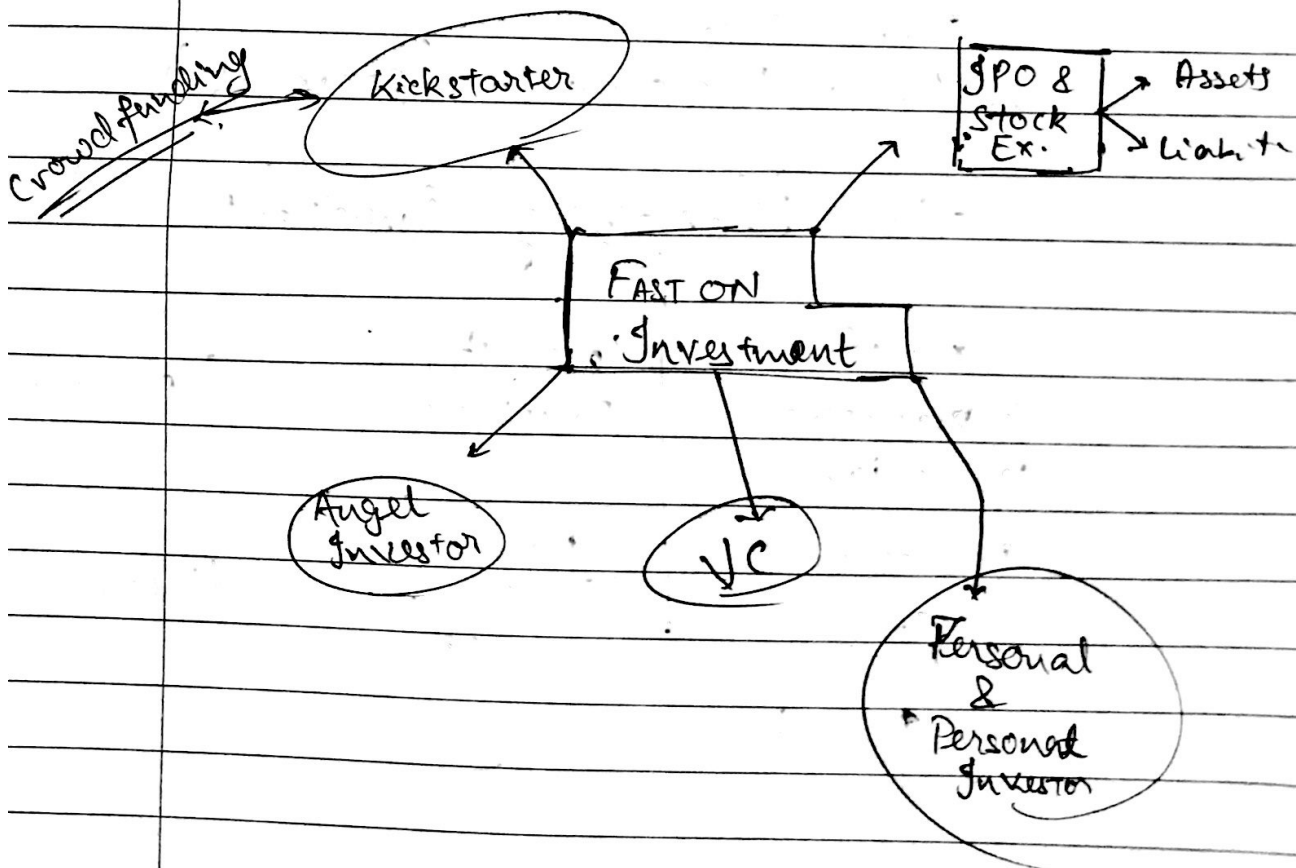 Crowd funding
Kickstarter
IPO &
Stock
Ex.
Assets
FAST ON
Investment
Angel
Investor
VC
Personal
&
Personal
Investor